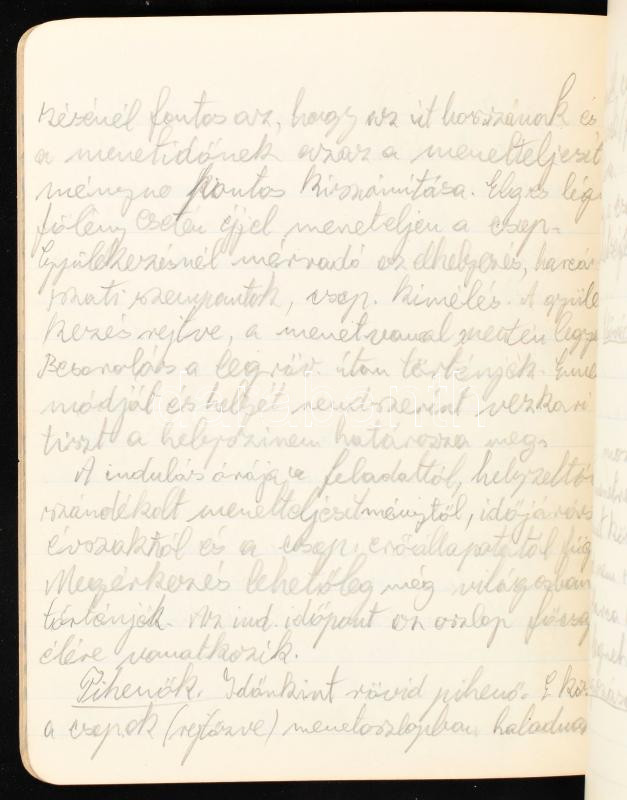 zésénél fontos az, hogy az út hosszának és
a menetidőnek azaz a menetteljesít
ményne pontos kiszámítása. Elg.s lég
fölény esetén éjjel meneteljen a csap.
Gyülekezésnél mérvadó az elhelyezés, harcá
szati szempontok, csap. kimélés. A gyüle
kezés rejtve, a menetvonal mentén legye
Besorolás a leg röv. úton történjék. Enne
módját és helyét rendszerint vezkari
tiszt a helyszinen határozza meg.
A indulás órája a feladattól, helyzettő
szándékolt menetteljesítménytől, időjárás
évszaktól és a csap. erőállapotától füg
Megérkezés lehetőleg még világosban
történjék. Az ind. időpont az oszlop főcsap
élére vonatkozik.
Pihenők. Időnkint rövid pihenő. E köz
a csapok (rejtőzve) menetoszlopban haladnak